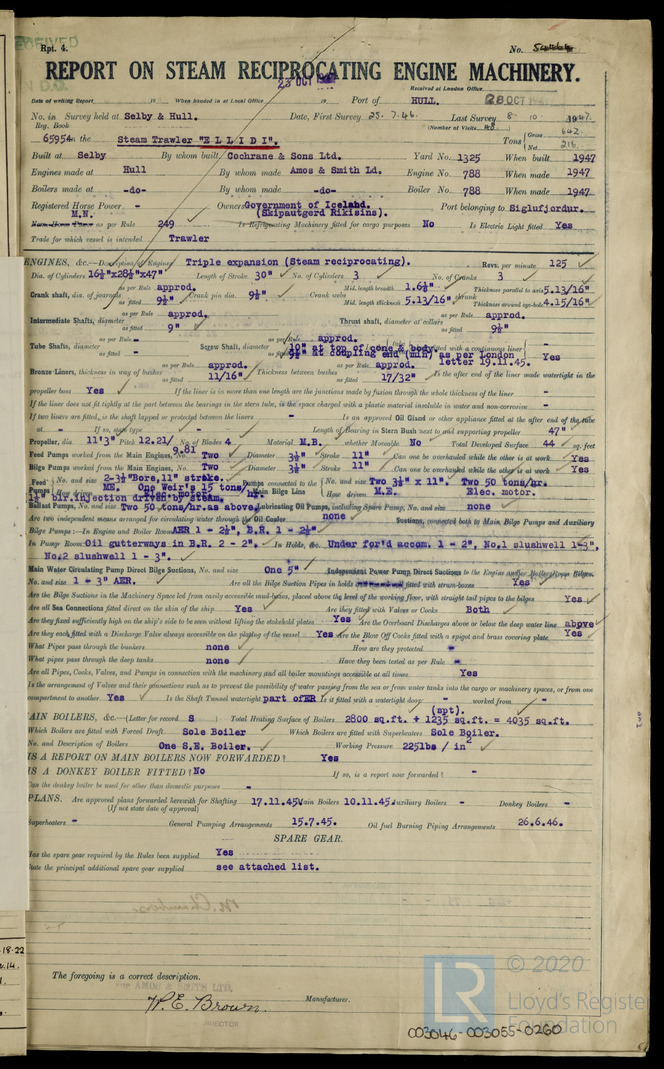 RECEIVED
Rpt. 4. No.
REPORT ON STEAM RECIPROCATING ENGINE MACHINERY.
23 OCT
Received at London Office 28 OCT
Date of writing Report 19 When handed in at Local Office 19 Port of HULL.
No. in Survey held at Selby & Hull. Date, First Survey 25.7.46. Last Survey 8 - 10 1947.
Reg. Book (Number of Visits
65954 on the Steam Trawler "ELLIDI". Tons Gross 642. Net 216.
Built at Selby By whom built Cochrane & Sons Ltd. Yard No. 1325 When built 1947
Engines made at Hull By whom made Amos & Smith Ld. Engine No. 788 When made 1947
Boilers made at -do- By whom made -do- Boiler No. 788 When made 1947
Registered Horse Power - Owners Government of Iceland. (Skipautgerd Rikisins). Port belonging to Siglufjordur.
M.N. as per Rule 249 Is Refrigerating Machinery fitted for cargo purposes No Is Electric Light fitted Yes
Trade for which vessel is intended Trawler
ENGINES, &c.—Description of Engines Triple expansion (Steam reciprocating). Revs. per minute 125
Dia. of Cylinders 16½"x28½"x47" Length of Stroke 30" No. of Cylinders 3 No. of Cranks 3
Crank shaft, dia. of journals as per Rule approd. as fitted 9½" Crank pin dia. 9½" Crank webs Mid. length breadth 1.6½" Mid. length thickness 5.13/16" shrunk Thickness parallel to axis 5.13/16" Thickness around eye-hole 4.15/16"
Intermediate Shafts, diameter as per Rule approd. as fitted 9" Thrust shaft, diameter at collars as per Rule approd. as fitted 9½"
Tube Shafts, diameter as per Rule - as fitted - Screw Shaft, diameter as per Rule approd. as fitted 10" at top of cone & body. 9½" at coupling end (min) as per London letter 19.11.45. fitted with a continuous liner Yes
Bronze Liners, thickness in way of bushes as per Rule approd. as fitted 11/16" Thickness between bushes as per Rule approd. as fitted 17/32" Is the after end of the liner made watertight in the
propeller boss Yes If the liner is in more than one length are the junctions made by fusion through the whole thickness of the liner -
If the liner does not fit tightly at the part between the bearings in the stern tube, is the space charged with a plastic material insoluble in water and non-corrosive -
If two liners are fitted, is the shaft lapped or protected between the liners - Is an approved Oil Gland or other appliance fitted at the after end of the tube
at - If so, state type - Length of Bearing in Stern Bush next to and supporting propeller 47"
Propeller, dia. 11'3" Pitch 12.21/9.81 No. of Blades 4 Material M.B. whether Moveable No Total Developed Surface 44 sq. feet
Feed Pumps worked from the Main Engines, No. Two Diameter 3½" Stroke 11" Can one be overhauled while the other is at work Yes
Bilge Pumps worked from the Main Engines, No. Two Diameter 3½" Stroke 11" Can one be overhauled while the other is at work Yes
Feed Pumps 2-3½"Bore,11" stroke. ME. One Weir's 15 tons/hr. Pumps connected to the Main Bilge Line No. and size Two 3½" x 11". Two 50 tons/hr. How driven M.E. Elec. motor.
blr.injection driven by steam.
Ballast Pumps, No. and size Two 50 tons/hr.as above Lubricating Oil Pumps, including Spare Pump, No. and size none
Are two independent means arranged for circulating water through the Oil Cooler none Suctions, connected both to Main Bilge Pumps and Auxiliary
Bilge Pumps:—In Engine and Boiler Room AER 1 - 2½", B.R. 1 - 2½"
In Pump Room Oil gutterways in B.R. 2 - 2". In Holds, &c. Under for'd accom. 1 - 2", No.1 slushwell 1-3",
No.2 slushwell 1 - 3".
Main Water Circulating Pump Direct Bilge Suctions, No. and size One 5" Independent Power Pump Direct Suctions to the Engine
No. and size 1 - 3" AER. Are all the Bilge Suction Pipes in holds fitted with strum-boxes Yes
Are the Bilge Suctions in the Machinery Space led from easily accessible mud-boxes, placed above the level of the working floor, with straight tail pipes to the bilges Yes
Are all Sea Connections fitted direct on the skin of the ship Yes Are they fitted with Valves or Cocks Both
Are they fixed sufficiently high on the ship's side to be seen without lifting the stokehold plates Yes Are the Overboard Discharges above or below the deep water line above
Are they each fitted with a Discharge Valve always accessible on the plating of the vessel Yes Are the Blow Off Cocks fitted with a spigot and brass covering plate Yes
What Pipes pass through the bunkers none How are they protected -
What pipes pass through the deep tanks none Have they been tested as per Rule -
Are all Pipes, Cocks, Valves, and Pumps in connection with the machinery and all boiler mountings accessible at all times Yes
Is the arrangement of Valves and their connections such as to prevent the possibility of water passing from the sea or from water tanks into the cargo or machinery spaces, or from one
compartment to another Yes Is the Shaft Tunnel watertight part of ER Is it fitted with a watertight door - worked from -
MAIN BOILERS, &c.—(Letter for record S Total Heating Surface of Boilers 2800 sq.ft. + 1235 (spt). sq.ft. = 4035 sq.ft.
Which Boilers are fitted with Forced Draft Sole Boiler Which Boilers are fitted with Superheaters Sole Boiler.
No. and Description of Boilers One S.E. Boiler. Working Pressure 225lbs / in2
IS A REPORT ON MAIN BOILERS NOW FORWARDED? Yes
IS A DONKEY BOILER FITTED? No If so, is a report now forwarded? -
Can the donkey boiler be used for other than domestic purposes -
PLANS. Are approved plans forwarded herewith for Shafting 17.11.45 Main Boilers 10.11.45. Auxiliary Boilers - Donkey Boilers -
(If not state date of approval)
Superheaters - General Pumping Arrangements 15.7.45. Oil fuel Burning Piping Arrangements 26.6.46.
SPARE GEAR.
Has the spare gear required by the Rules been supplied Yes
State the principal additional spare gear supplied see attached list.
The foregoing is a correct description.
For AMOS & SMITH LTD.
W.E. Brown. Manufacturer.
DIRECTOR
LR © 2020
Lloyd's Register
Foundation
003046-003055-0260